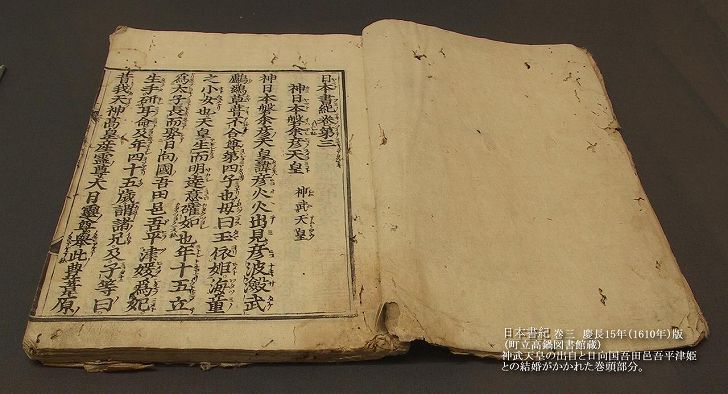 日本書紀卷第三
神日本磐余彦天皇　神武天皇
神日本磐余彦天皇諱彦火火出見彦波瀲武
鸕鷀草葺不合尊第四子也母曰玉依姫海童
之小女也天皇生而明達意確如也年十五立
爲太子長而娶日向國吾田邑吾平津媛爲妃
生手研耳命及年四十五歳謂諸兄及子等曰
昔我天神高皇産靈尊大日孁尊擧此豊葦原
日本書紀 巻三　慶長15年(1610年)版
(町立高鍋図書館蔵)
神武天皇の出自と日向国吾田邑吾平津姫
との結婚がかかれた巻頭部分。